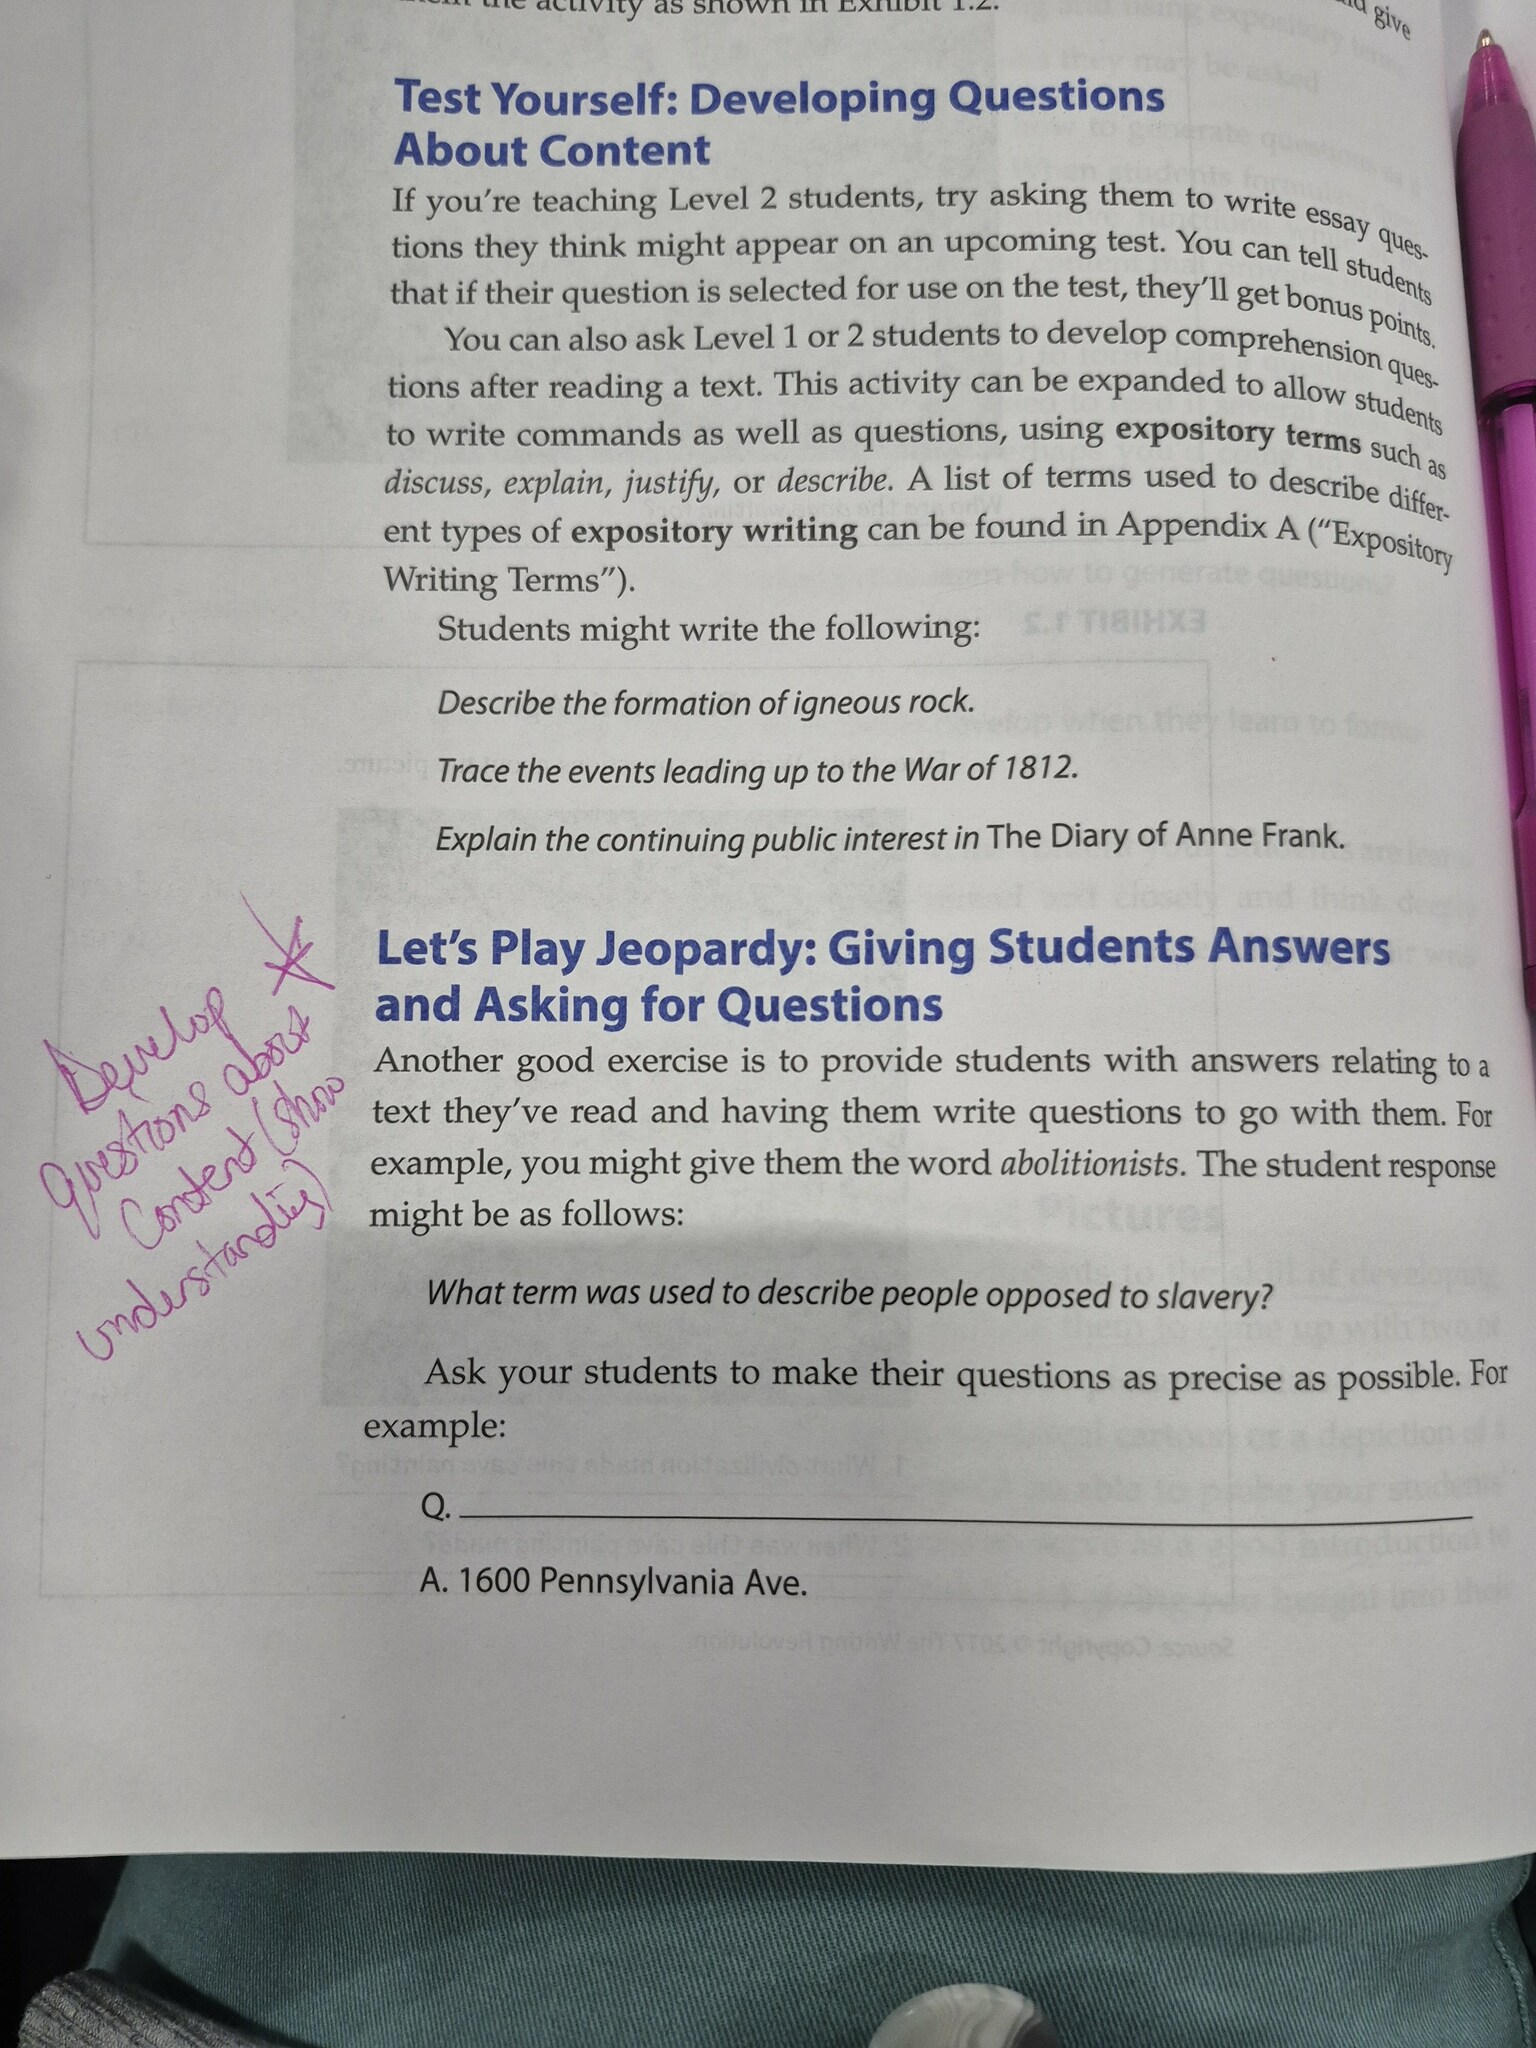 the activity as shown in Exhibit 1.2.
give
Test Yourself: Developing Questions
About Content
If you're teaching Level 2 students, try asking them to write essay ques-
tions they think might appear on an upcoming test. You can tell students
that if their question is selected for use on the test, they'll get bonus points.
You can also ask Level 1 or 2 students to develop comprehension ques-
tions after reading a text. This activity can be expanded to allow students
to write commands as well as questions, using expository terms such as
discuss, explain, justify, or describe. A list of terms used to describe differ-
ent types of expository writing can be found in Appendix A ("Expository
Writing Terms").
Students might write the following:
Describe the formation of igneous rock.
Trace the events leading up to the War of 1812.
Explain the continuing public interest in The Diary of Anne Frank.
Let's Play Jeopardy: Giving Students Answers
and Asking for Questions
Another good exercise is to provide students with answers relating to a
text they've read and having them write questions to go with them. For
example, you might give them the word abolitionists. The student response
might be as follows:
What term was used to describe people opposed to slavery?
Ask your students to make their questions as precise as possible. For
example:
Q.
A. 1600 Pennsylvania Ave.
Develop
questions about
Content (show
understanding)